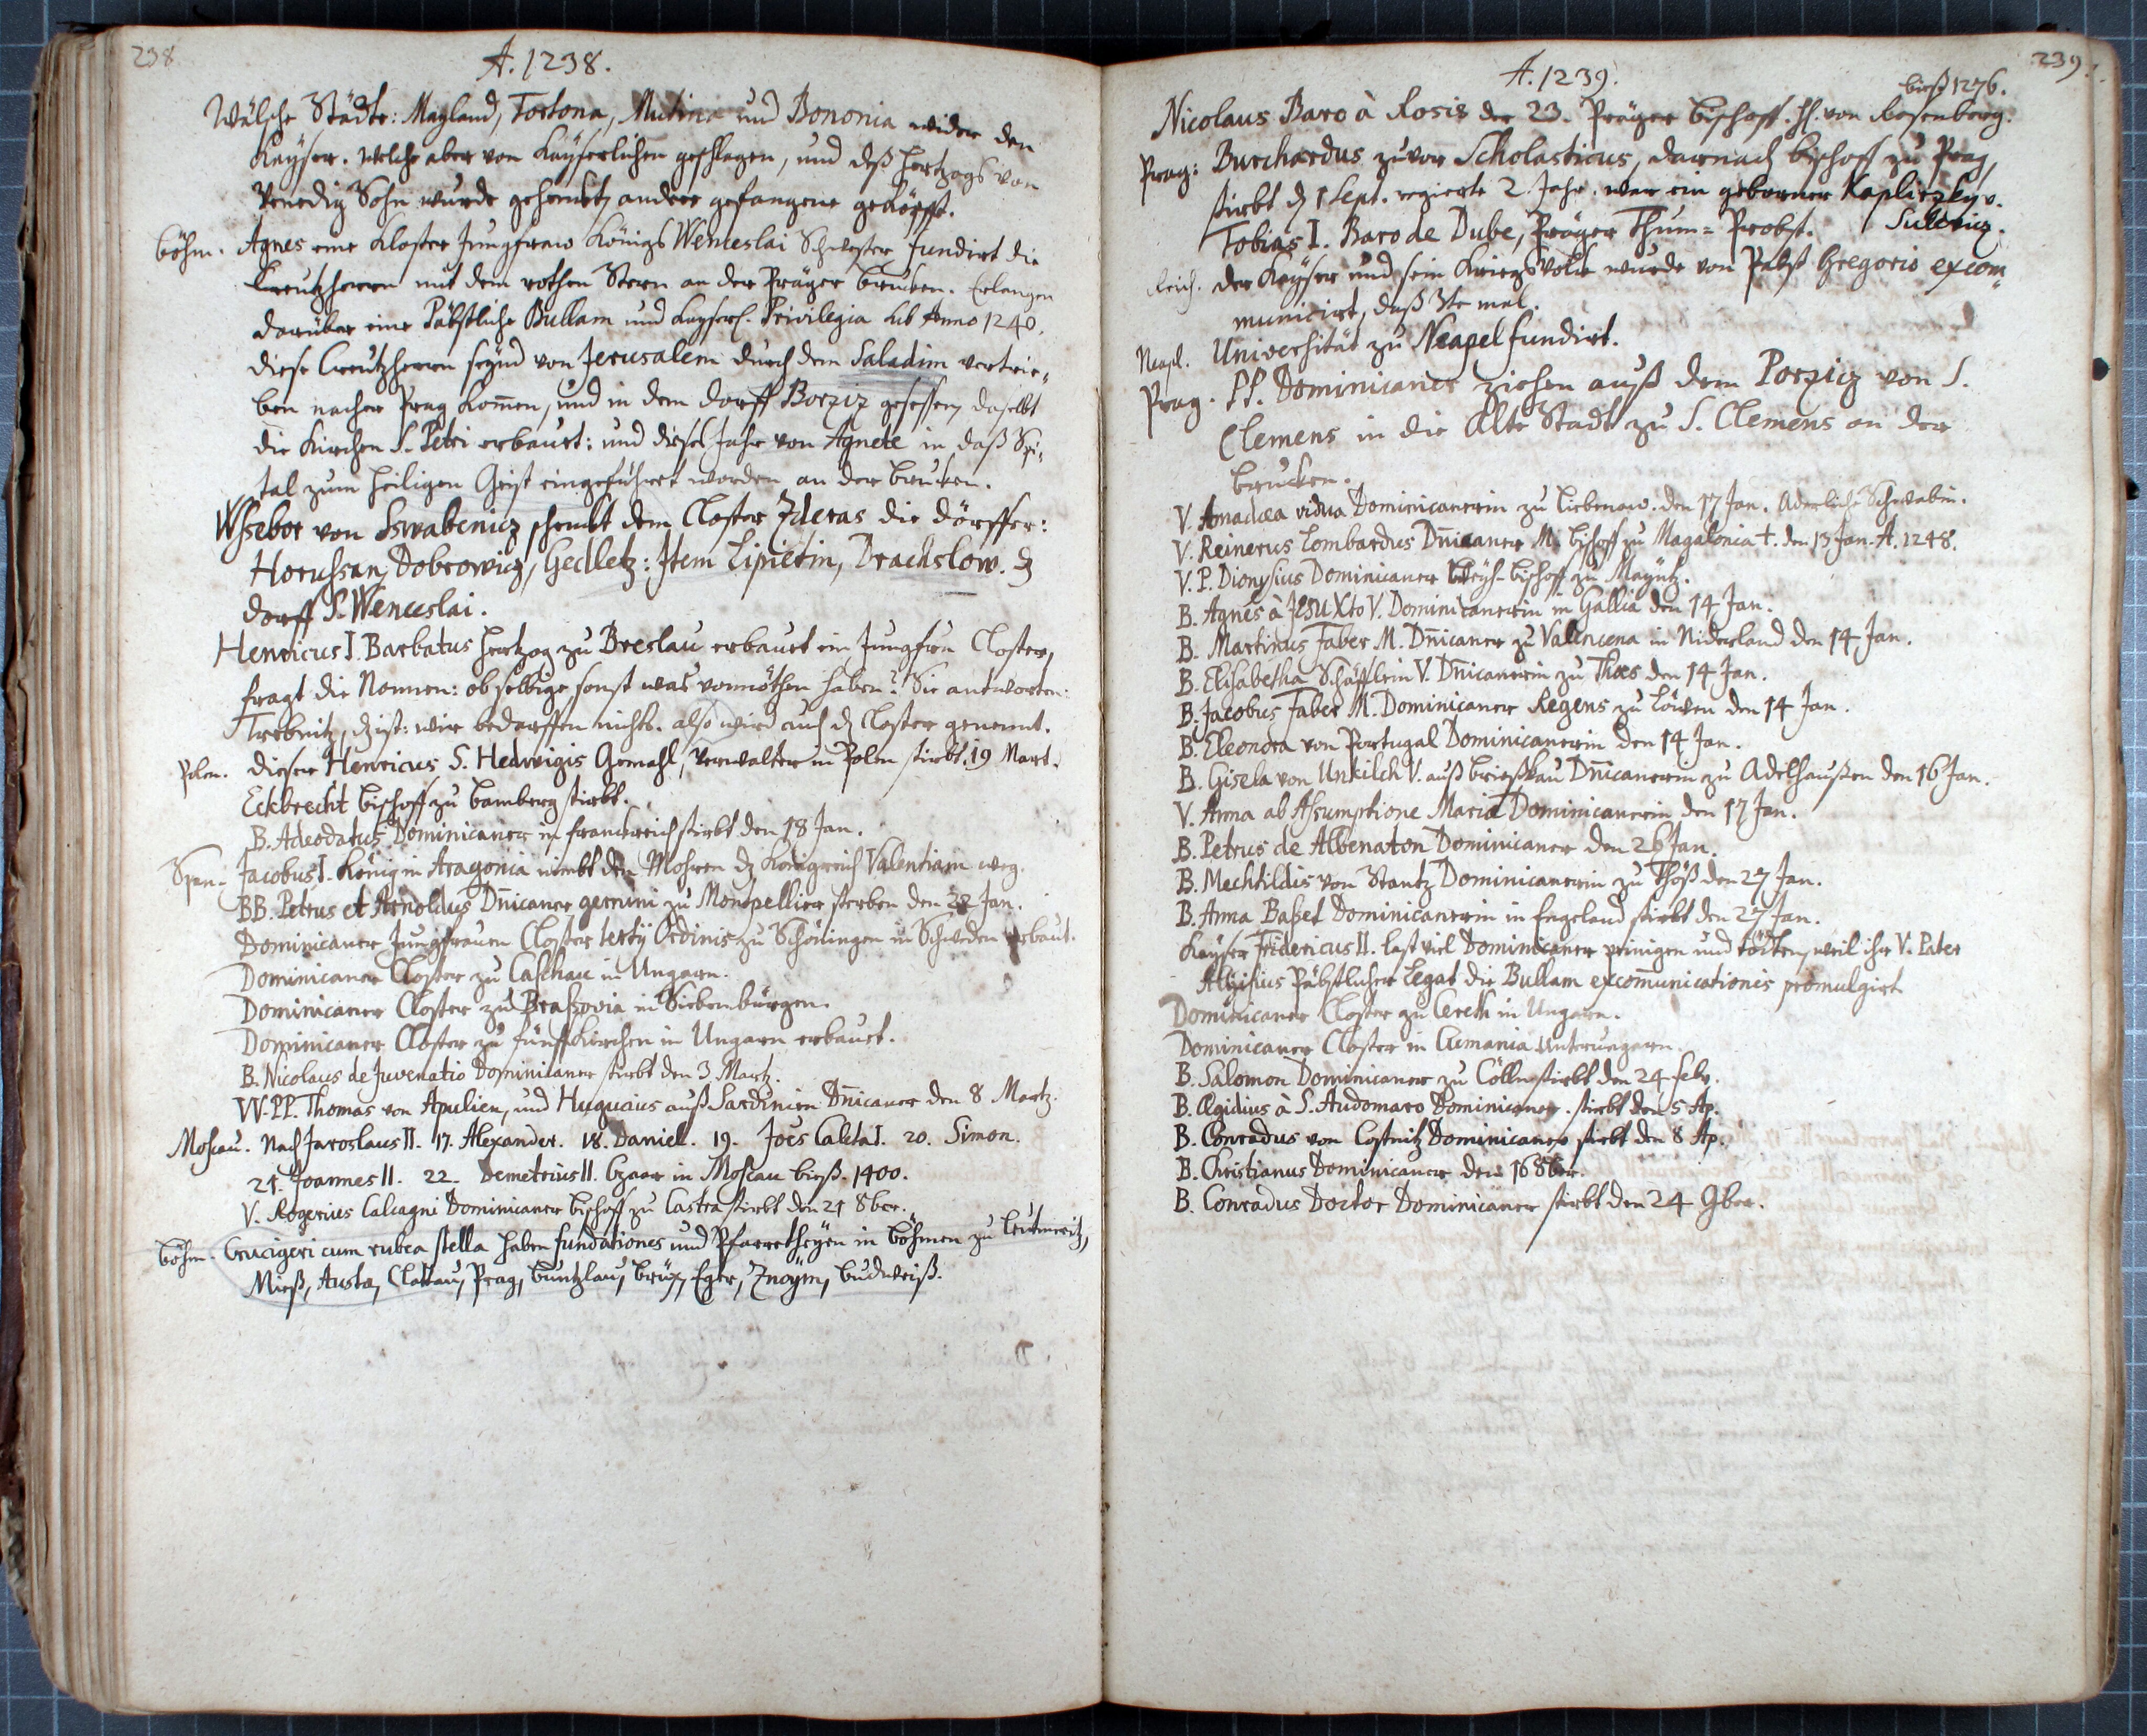 238
A. 1238.
Wälsche Städte: Mayland, Tortona, Mutina und Bononia wider den
Kayser. Welche aber von Kayserlichen geschlagen, und deß Hertzogs von
Venedig Sohn wurde gehenckt, andere gefangene geköpfft.
Böhm. Agnes eine Kloster Jungfraw Königs Wenceslai Schwester fundirt die
Creutzherrn mit dem rothen Stern an der Präger brucken. Erlangen
darüber eine Päbstliche Bullam und Kayserl. Privilegia sub Anno 1240.
diese Creutzherrn seynd von Jerusalem durch dem Saladim vertrie„
ben nacher Prag kom̄en, und in dem dorff Borziz gesessen, daselbt
die Kirchen S. Petri erbauet: und dieses Jahr von Agnete in daß Spi„
tal zum heiligen Geist eingeführet worden an der brucken.
Wssebor von Sswabenicz schenckt dem Closter Zderas die dörffer:
Horussan, Dobrowicz, Gedletz: Item Lipietin, Drachslow. dz
dorff S. Wenceslai.
Henricus I. Barbatus Hertzog zu Breslau erbauet ein Jungfrn Closter,
fragt die Nonnen: ob selbige sonst was vonnöthen haben? Sie antworten:
Trebnitz, dz ist: wir bedarffen nichts. also wird auch dz Closter genennt.
Polen. dieser Henricus S. Hedwigis Gemahl, Verwalter in Polen stirbt. 19 Mart.
Eckbrecht bischoff zu bamberg stirbt.
B. Adeodatus Dominicaner in Franckreich stirbt den 18 Jan.
Span- Jacobus I. König in Aragonia nimbt den Mohren dz Königreich Valentiam weg.
BB. Petrus et Arnoldus Dn̄icaner gemini zu Montpellier sterben den 22 Jan.
Dominicaner Jungfrauen Closter tertij Ordinis zu Schöningen in Schweden erbaut.
Dominicaner Closter zu Caschau in Ungarn.
Dominicaner Closter zu Brassovia in Siebenbürgen.
Dominicaner Closter zu fünffkirchen in Ungarn erbauet.
B. Nicolaus de Juvenatio Dominicaner stirbt den 3 Martz.
VV. PP. Thomas von Apulien, und Hugucius auß Sardinien Dn̄icaner den 8 Martz.
Moscau. Nach Jaroslaus II. 17. Alexander. 18. Daniel. 19. Joēs Caleta I. 20. Simon.
21. Joannes II. 22. Demetrius II. Czaar in Moscau bieß. 1400.
V. Rogerius Calcagni Dominicaner bischoff zu Castra stirbt den 21 8ber.
Böhm. Crucigeri cum rubea stella haben fundationes und Pfarretheyen in Böhmen zu Leutmeritz,
Mieß, Austa, Clattau, Prag, Buntzlau, Brüx, Eger, Znoym, Budweiß.
239.
A. 1239.
bieß 1276.
Nicolaus Baro à Rosis der 23. Präger bischoff. H. von Rosenberg.
Prag: Burchardus zuvor Scholasticus, darnach bischoff zu Prag,
stirbt dz 1 Sept. regierte 2 Jahr. war ein geborner Kapliczky v.
Tobias I. Baro de Dube, Präger Thum= Probst. / Sulevicz.
Reich. der Kayser und sein Kriegsvolck wurde von Pabst Gregorio excom„
municirt, daß 3te mal.
Neapl. Universität zu Neapel fundirt.
Prag. PP. Dominicaner ziehen auß dem Porzicz von S.
Clemens in die Alte Stadt zu S. Clemens an der
brucken.
V. Amadæa vidua Dominicanerin zu Liebenaw. den 17 Jan. Aderliche Schwäbin.
V. Reinerus Lombardus Dn̄icaner M. bischoff zu Magalonia †. den 13 Jan. A. 1248.
V. P. Dionysius Dominicaner Weyh-bischoff zu Mayntz.
B. Agnes à JESU Xto V. Dominicanerin in Gallia den 14 Jan.
B. Martinus Faber M. Dn̄icaner zu Valencena in Niderland den 14 Jan.
B. Elisabetha Schäfflein V. Dn̄icanerin zu Thæs den 14 Jan.
B. Jacobus Faber M. Dominicaner Regens zu Löwen den 14 Jan.
B. Eleonora von Portugal Dominicanerin den 14 Jan.
B. Gisela von Unkilch V. auß brißkau Dn̄icanerin zu Adelhaußen den 16 Jan.
V. Anna ab Assumptione Mariæ Dominicanerin den 17 Jan.
B. Petrus de Albenaton Dominicaner den 26 Jan.
B. Mechtildis von Stantz Dominicanerin zu Thöß den 27 Jan.
B. Anna Basset Dominicanerin in Engeland stirbt den 27 Jan.
Kayser Fridericus II. last viel Dominicaner peinigen und tödten, weil ihr V. Pater
Algisius Päbstlicher Legat die Bullam excom̄unicationis promulgirt
Dominicaner Closter zu Cereth in Ungarn.
Dominicaner Closter in Cumania Unterungarn.
B. Salomon Dominicaner zu Cölln stirbt den 24 Febr.
B. Ægidius à S. Audomaro Dominicaner. stirbt den 5 Ap.
B. Conradus von Costnitz Dominicaner stirbt den 8 Ap.
B. Christianus Dominicaner den 16 8ber.
B. Conradus Doctor Dominicaner stirbt den 24 9ber.